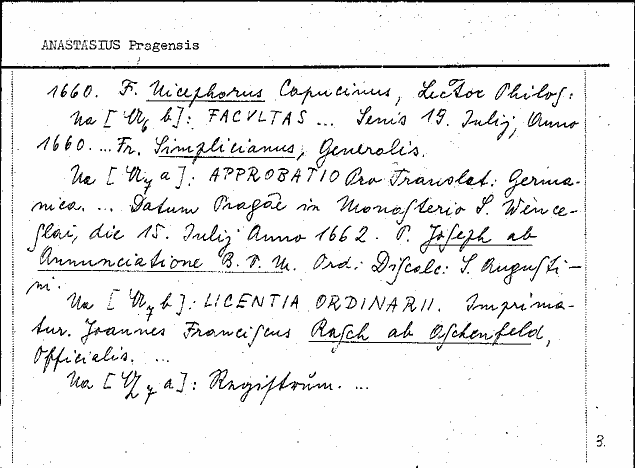 ANASTASIUS Pragensis
1660. F. Nicephorus Capucinus, Lector Philos:
Na [ b]: FACVLTAS ... Senis 19. Julij, Anno
1660. ... Fr. Simplicianus, Generalis.
Na [ a]: APPROBATIO Pro Translat. Germa-
nica. ... Datum Pragae in Monasterio S. Wence-
slai, die 15. Julij Anno 1662. P. Joseph ab
Annunciatione B. V. M. Ord: Discalc: S. Augusti-
ni.
Na [ b]: LICENTIA ORDINARII. Imprima-
tur. Joannes Franciscus Rasch ab Aschenfeld,
Officialis. ...
Na [ a]: Registrum. ...
3.